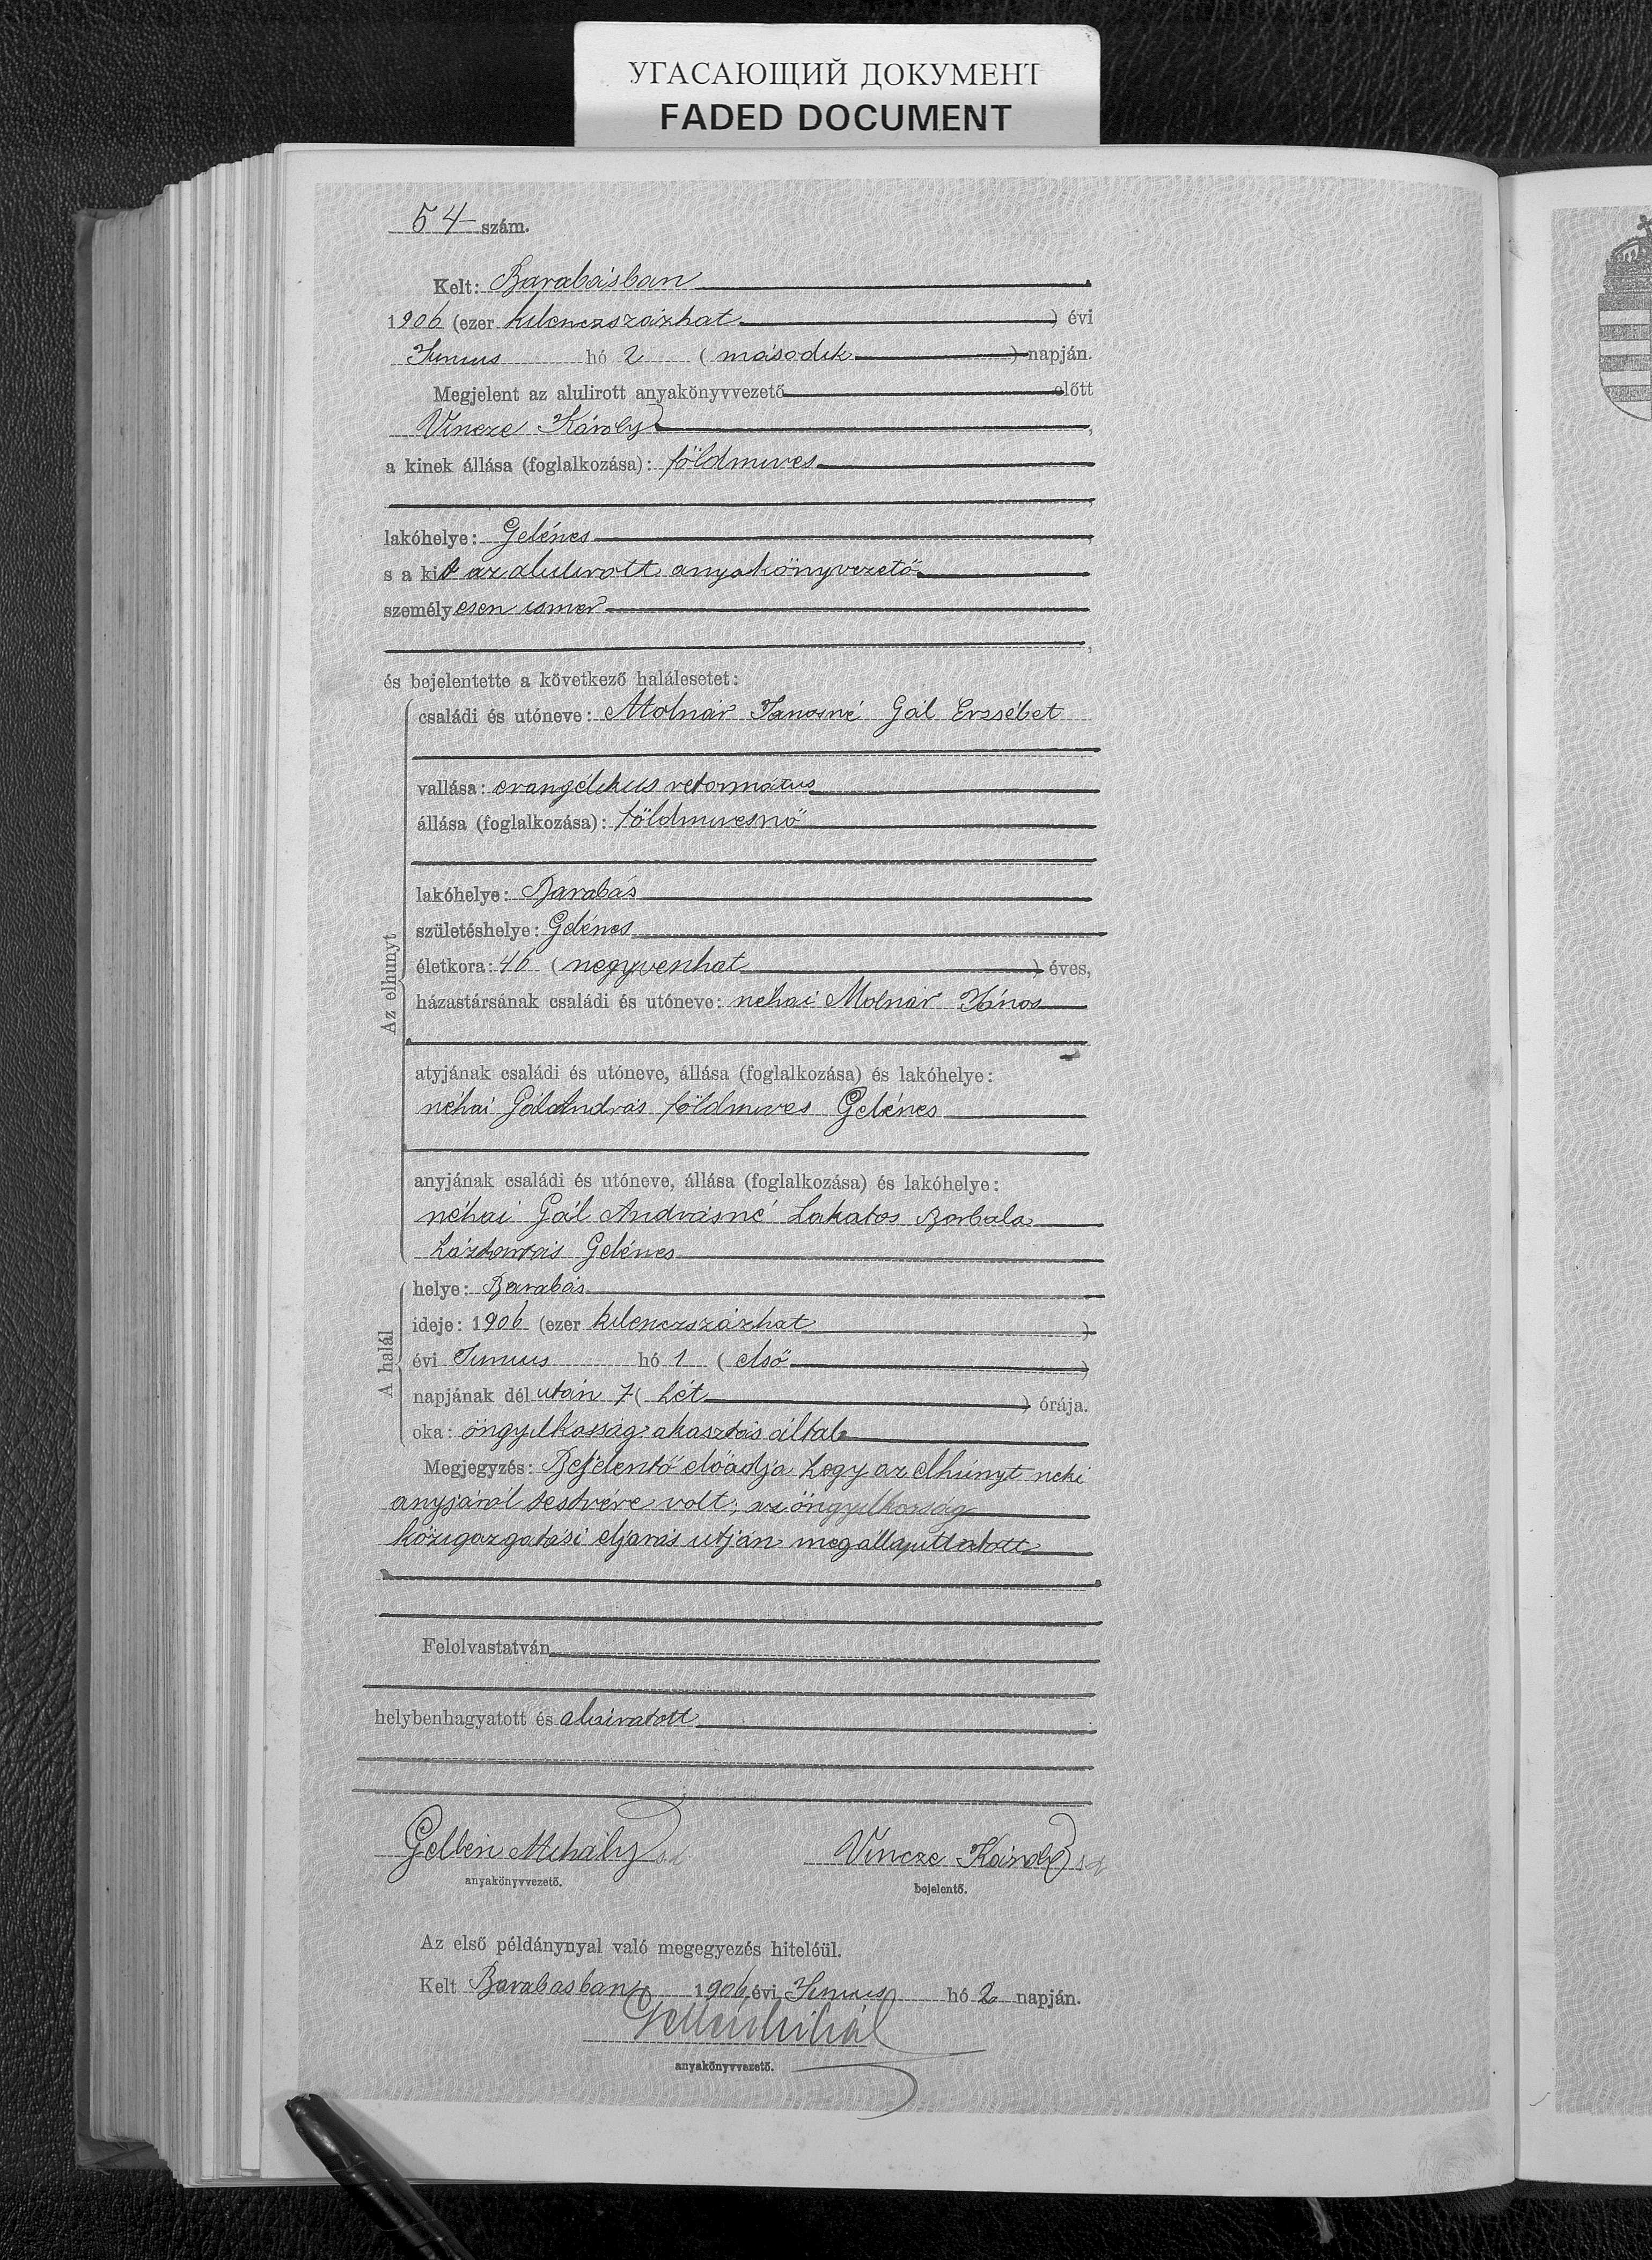 УГАСАЮЩИЙ ДОКУМЕНТ
FADED DOCUMENT
54 szám.
Kelt: Barabásban
1906 (ezer kilenczszázhat) évi
Junius hó 2 (második) napján.
Megjelent az alulirott anyakönyvvezető előtt
Vincze Károly,
a kinek állása (foglalkozása): földmives
lakóhelye: Gelénes
s a kit az alulirott anyakönyvezető
személyesen ismer
és bejelentette a következő halálesetet:
Az elhunyt
családi és utóneve: Molnár Jánosné Gál Erzsébet
vallása: evangélikus református
állása (foglalkozása): földmivesnő
lakóhelye: Barabás
születéshelye: Gelénes
életkora: 46 (negyvenhat) éves,
házastársának családi és utóneve: néhai Molnár János
atyjának családi és utóneve, állása (foglalkozása) és lakóhelye:
néhai Gál András földmives Gelénes
anyjának családi és utóneve, állása (foglalkozása) és lakóhelye:
néhai Gál Andrásné Lakatos Borbala
háztartás Gelénes
A halál
helye: Barabás
ideje: 1906 (ezer kilenczszázhat)
évi Junius hó 1 (első)
napjának dél után 7 (hét) órája.
oka: öngyilkosság akasztás által
Megjegyzés: Bejelentő előadja hogy az elhúnyt neki
anyjáról testvére volt; az öngyilkosság
közigazgatási eljarás utján megállapittatott
Felolvastatván
helybenhagyatott és aláiratott
Gellén Mihály sk
anyakönyvvezető.
Vincze Károly sk
bejelentő.
Az első példánynyal való megegyezés hiteléül.
Kelt Barabasban 1906 évi Junius hó 2 napján.
anyakönyvvezető.